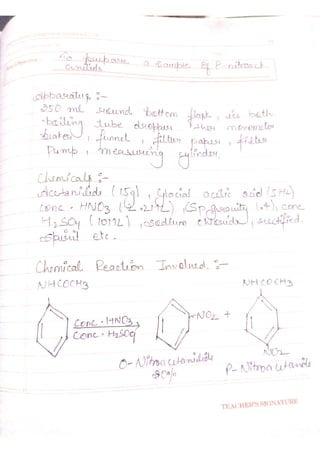 To prepare a sample of P-nitroacet
anilide
Apparatus :-
250 ml round bottom flask, ice bath
boiling tube dropper thermometer
beaker, funnel, filter paper, filter
Pump, measuring cylinder.
Chemicals :-
Acetanilide (15g), Glacial acetic acid (
conc. HNO3 ( (Sp. gravity 1.4), conc
H2SO4 (10mL), sodium chloride, rectified
spirit etc.
Chemical Reaction Involved :-
NHCOCH3 NHCOCH3
Conc. HNO3
Conc. H2SO4
NO2 +
NO2
O-Nitroacetanilide P-Nitroacetanilide
TEACHER'S SIGNATURE